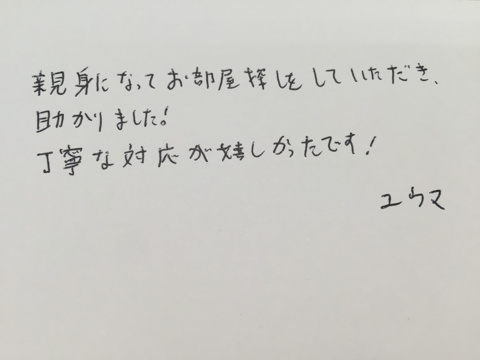 親身になってお部屋探しをしていただき、
助かりました!
丁寧な対応が嬉しかったです!
ユウマ